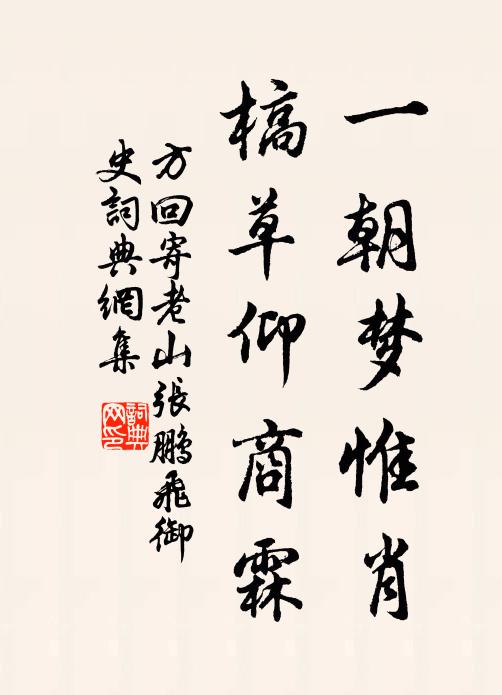 一朝梦惟肖
槁草仰商霖
方回寄老山張鵬飛御
史詞典網集
詞典
网印